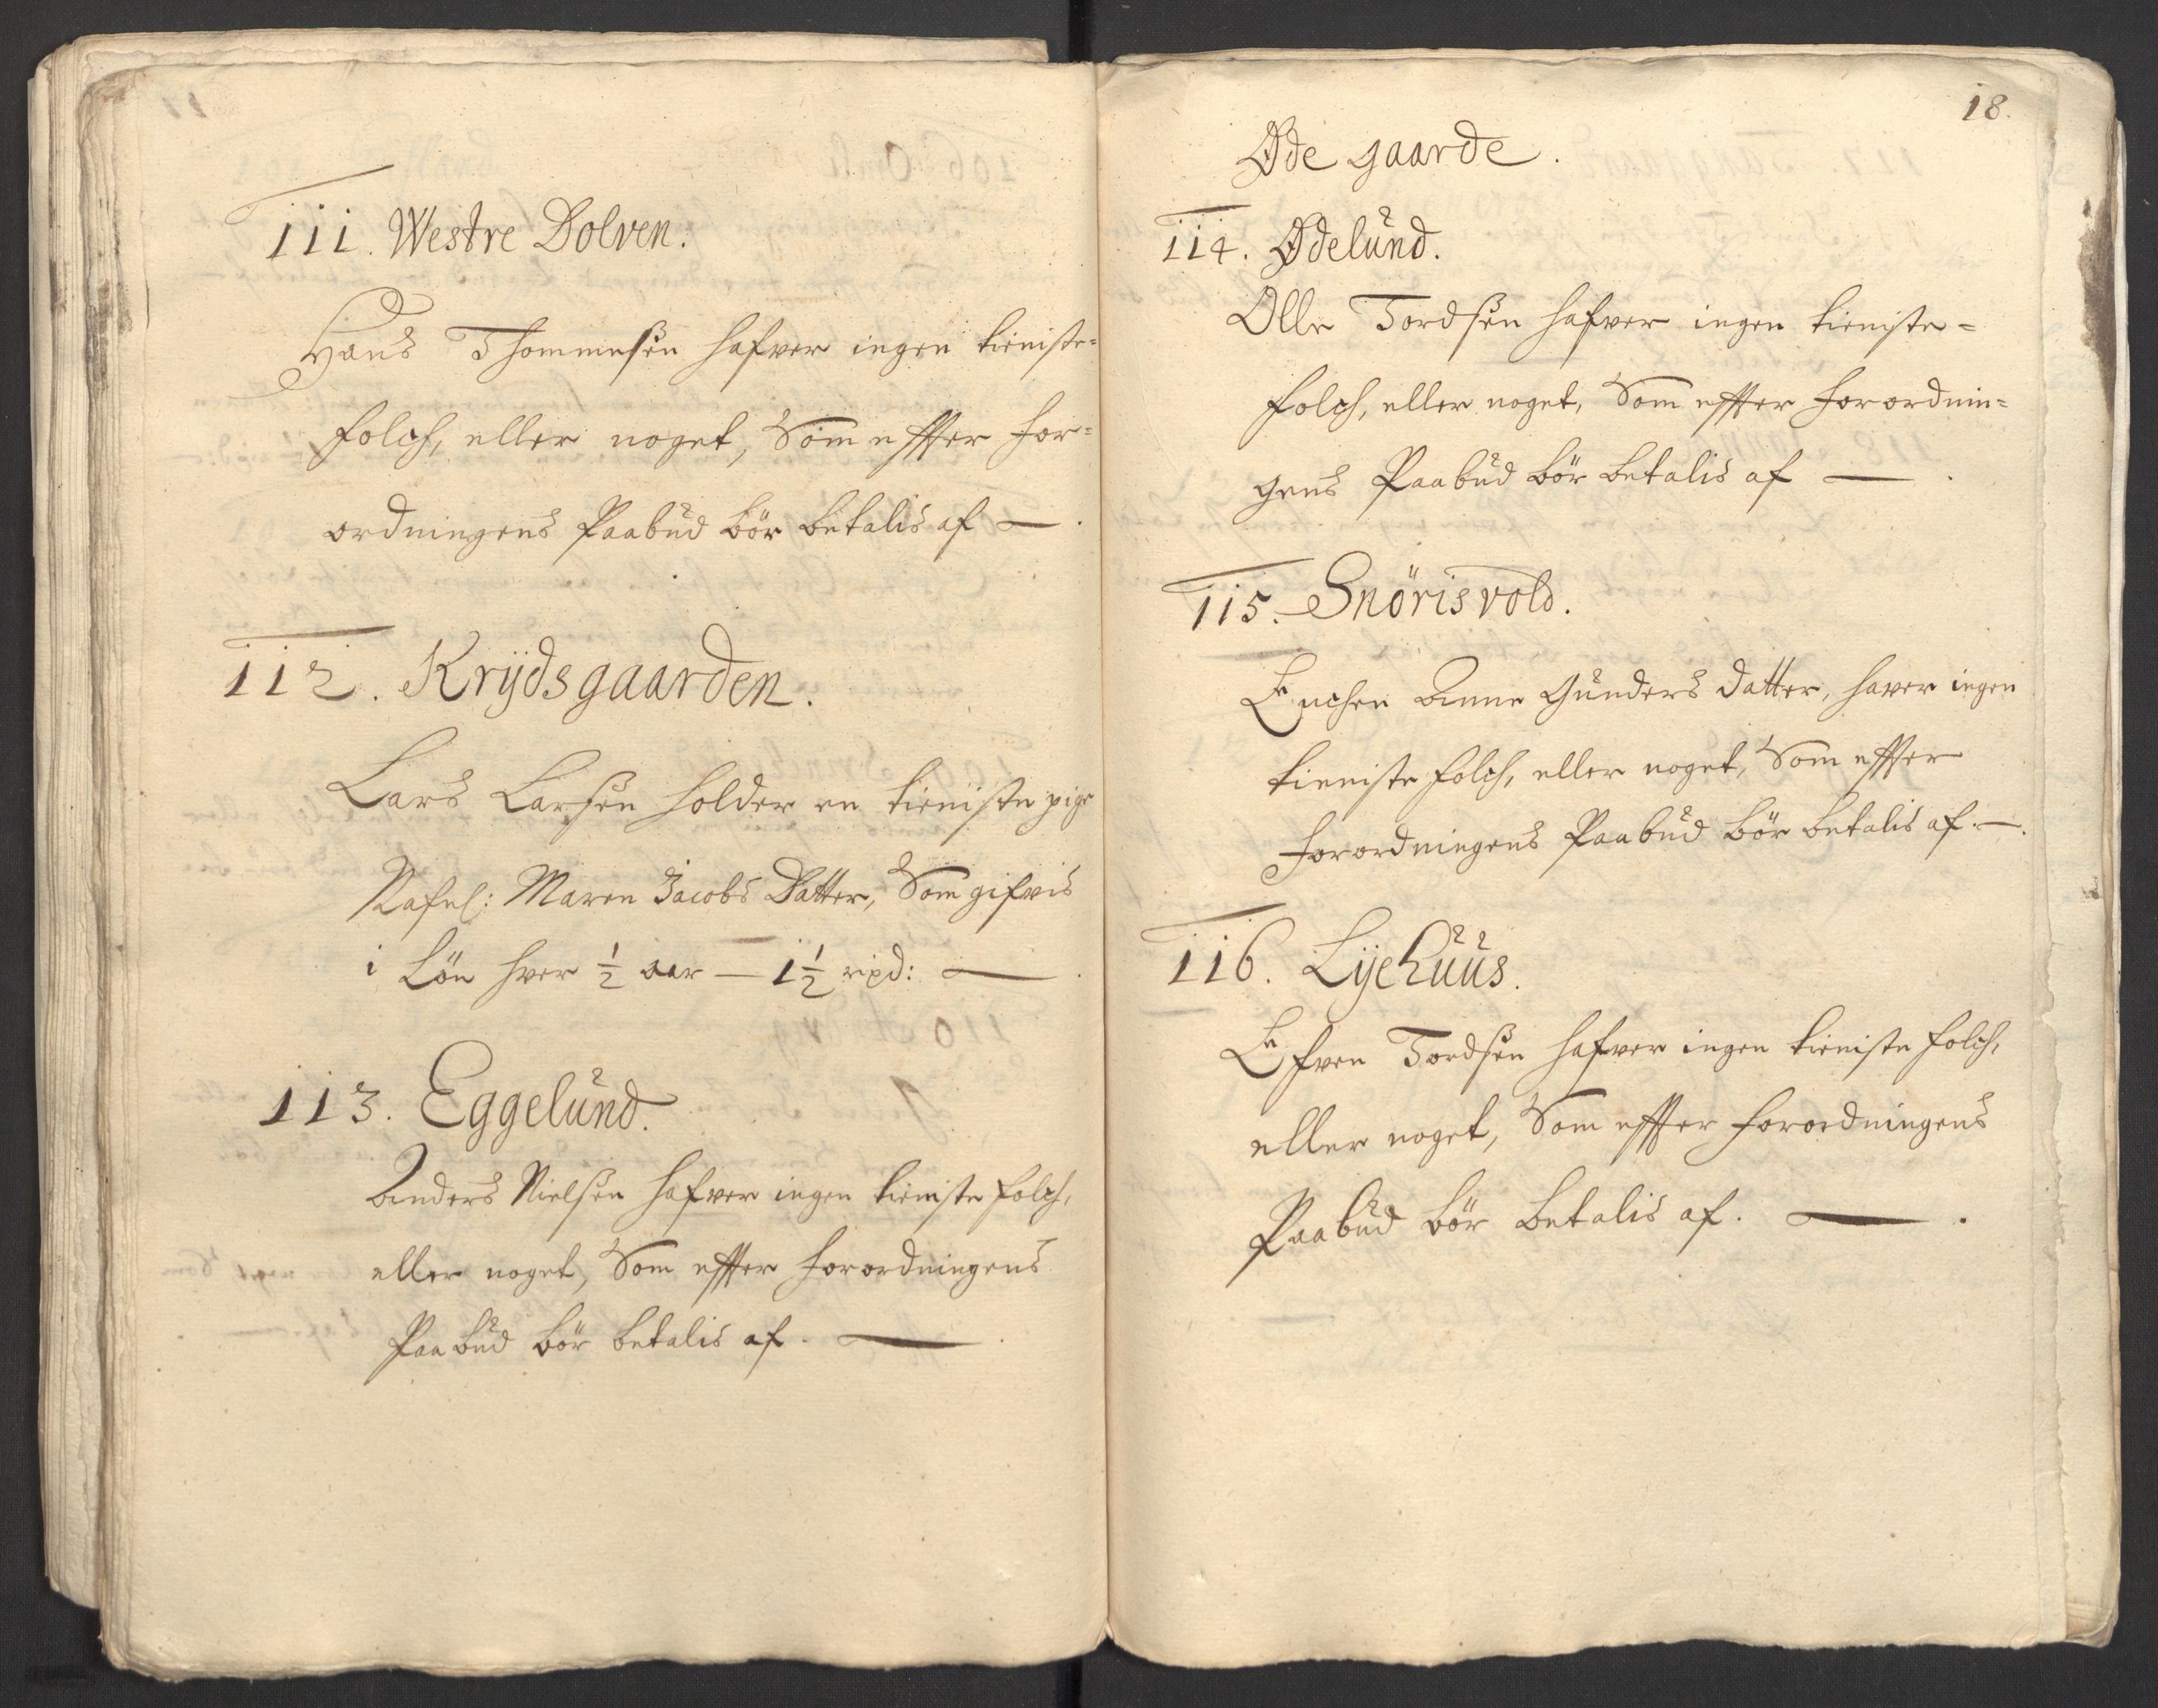 111. Westre Dolven.
Hans Thommesen hafver ingen tieniste-
folch, eller noget, Som effter for-
ordningens Paabud bör betalis af —.
112. Krijdsgaarden.
Lars Larsen holder en tieniste pige
Nafnl: Maren Jacobs Datter, Som gifvis
i Lön hver ½ aar — 1½ rixd: —.
113. Eggelund.
Anders Nielsen hafver ingen tieniste folch,
eller noget, Som effter forordningens
Paabud bör betalis af. —.
18.
Øde gaarde.
114. Ødelund.
Olle Tordsen hafver ingen tieniste-
folch, eller noget, Som effter forordnin-
gens Paabud bör betalis af —.
115. Snörisvold.
Enchen Anne Gunders datter, haver ingen
tieniste folch, eller noget, Som effter
forordningens Paabud bör betalis af. —.
116. Lijehuus.
Efven Tordsen hafver ingen tieniste folch,
eller noget, Som effter forordningens
Paabud bör betalis af. —.